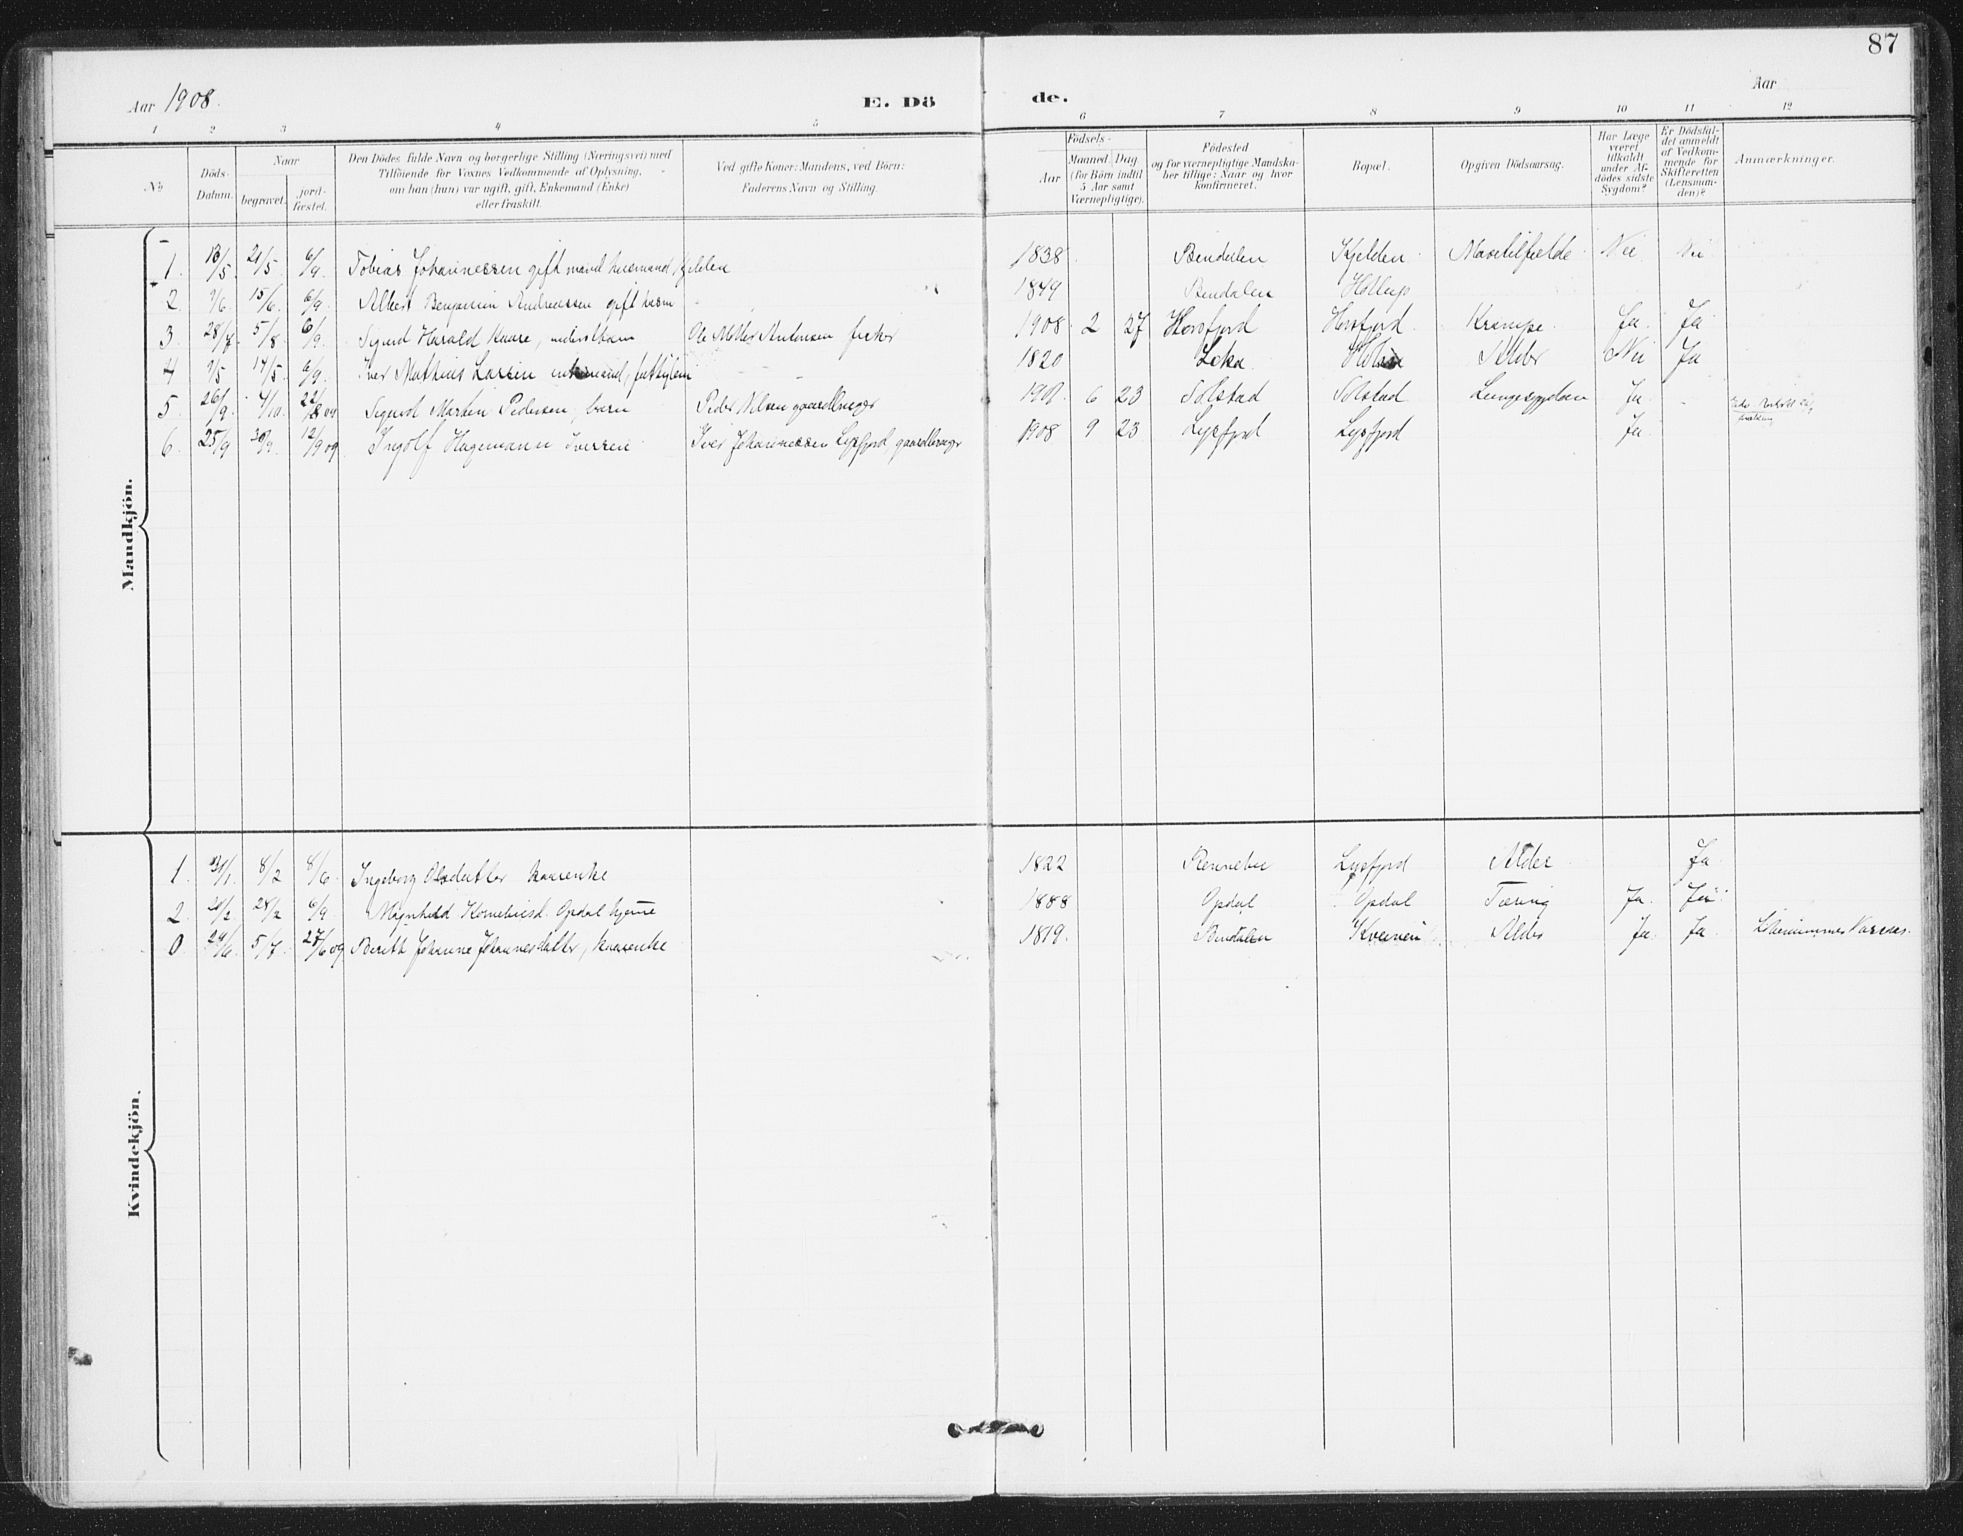 87
Aar 1908.
E. Dö de.
Aar
1 2 3 4 5 6 7 8 9 10 11 12
No
Döds-Datum.
Naar
begravet.
jord-fæstet.
Den Dödes fulde Navn og borgerlige Stilling (Næringsvei) med
Tilföiende for Voxnes Vedkommende af Oplysning,
om han (hun) var ugift, gift, Enkemand (Enke)
eller fraskilt.
Ved gifte Koner: Mandens, ved Börn:
Faderens Navn og Stilling.
Födsels-
Aar
Maaned Dag
(for Börn indtil
5 Aar samt
Værnepligtige).
Födested
og for værnepligtige Mandska-
ber tillige: Naar og hvor
konfirmeret.
Bopæl.
Opgiven Dödsaarsag.
Har Læge
været
tilkaldt
under Af-
dödes sidste
Sygdom?
Er Dödsfal-
det anmeldt
af Vedkom-
mende for
Skifteretten
(Lensman-
den)?
Anmærkninger.
Mandkjön.
1. 13/5 21/5 6/9 Tobias Johannessen gift mand husmand, Kjelden 1838 Bindalen Kjelden Mavetilfælde Nei Nei
2. 9/6 15/6 6/9 Albert Benjamin Andreassen gift 1849 Bindalen
3 28/7 5/8 6/9 Sigurd Harald Kaare, barn Ole Andersen fisker 1908 2 27 Horsfjord Horsfjord Krampe Ja. Ja
4 9/5 14/5 6/9 Iver Mathias Larsen 1820 Leka Alder Nei Ja
5. 26/9 4/10 22/8 09 Sigurd Martin Pedersen, barn Peder Nilsen gaardbruger 6 23 Solstad Solstad Ja.
6. 25/9 30/9 12/9 09 Ingolf Hagemann Iversen Iver Johannessen Lysfjord, gaardbruger 1908 9 23 Lysfjord Lysfjord Ja.
Kvindekjön.
1. 31/1 8/2 8/6 Ingeborg Olsdatter kaarenke 1822 Rennebu Lysfjord Alder Ja
2. 20/2 28/2 6/9 Magnhild Korneliusd. Opdal hjemme 1888 Opdal Opdal Tæring Ja. Ja
0. 29/6 5/7 27/6 09 Berith Johanne Johannesdatter, kaarenke 1819. Bindalen Alder Ja. Ja.